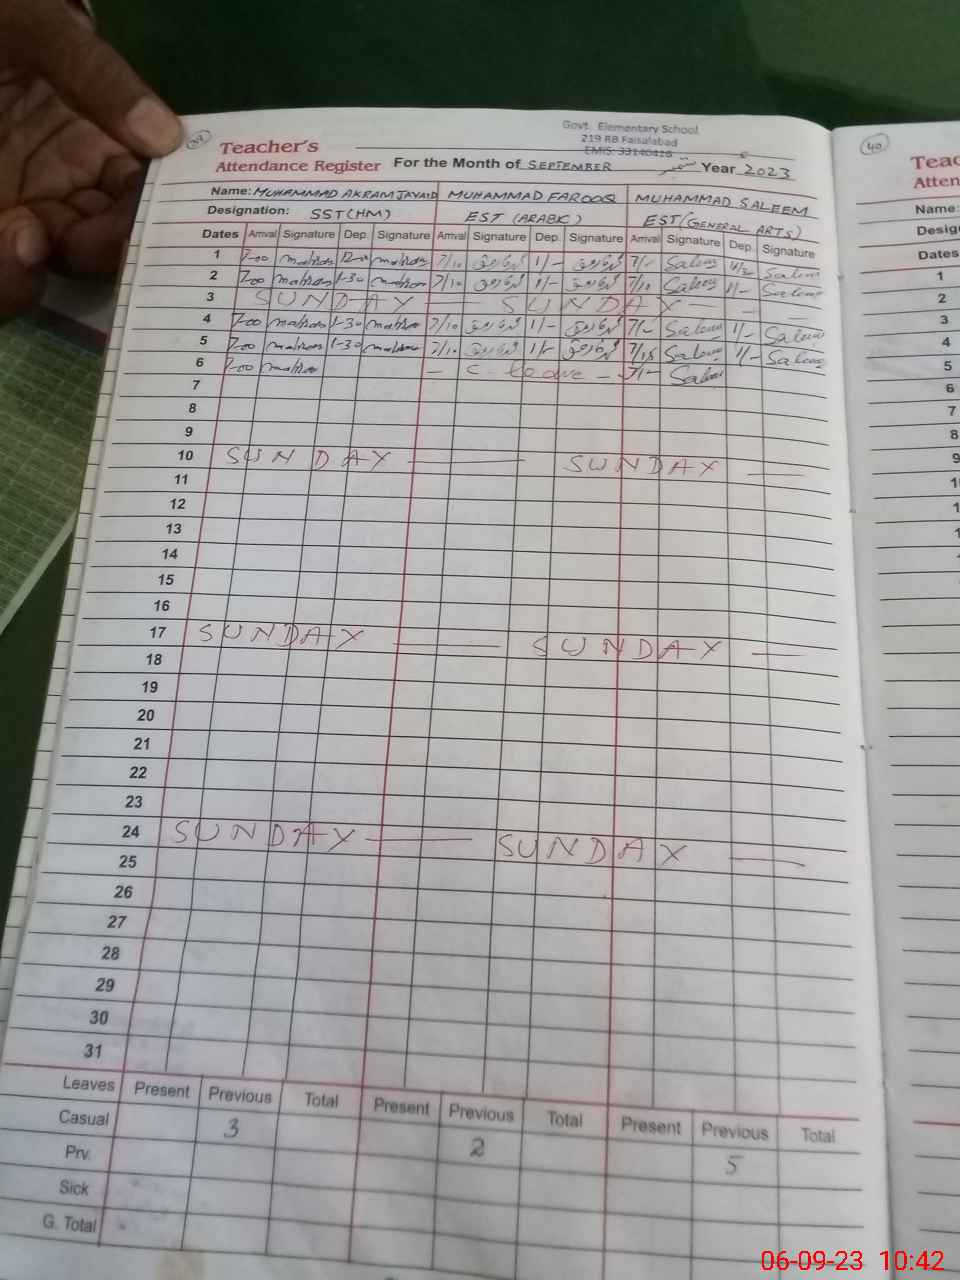 Govt. Elementary School
219 RB Faisalabad
EMIS: 33140416
Teacher's
Attendance Register For the Month of SEPTEMBER ستمبر Year 2023
Name: MUHAMMAD AKRAM JAVAID MUHAMMAD FAROOQ MUHAMMAD SALEEM
Designation: SST(HM) EST (ARABIC) EST (GENERAL ARTS)
Dates Arrival Signature Dep. Signature Arrival Signature Dep. Signature Arrival Signature Dep. Signature
1 7-00 12-0 7/10 1/- 7/- Saleem Saleem
2 7-00 1-30 7/10 1/- 7/10 Saleem 1/- Saleem
3 SUNDAY — SUNDAY —
4 7-00 1-30 7/10 1/- 7/- Saleem 1/- Saleem
5 7-00 1-30 7/10 1/- 7/15 Saleem 1/- Saleem
6 7-00 — C. leave — 7/- Saleem
7
8
9
10 SUNDAY — SUNDAY —
11
12
13
14
15
16
17 SUNDAY — SUNDAY —
18
19
20
21
22
23
24 SUNDAY — SUNDAY —
25
26
27
28
29
30
31
Leaves Present Previous Total Present Previous Total Present Previous Total
Casual 3 2 5
Prv.
Sick
G. Total
40
Name:
Dates
1
2
3
4
5
6
7
8
06-09-23 10:42